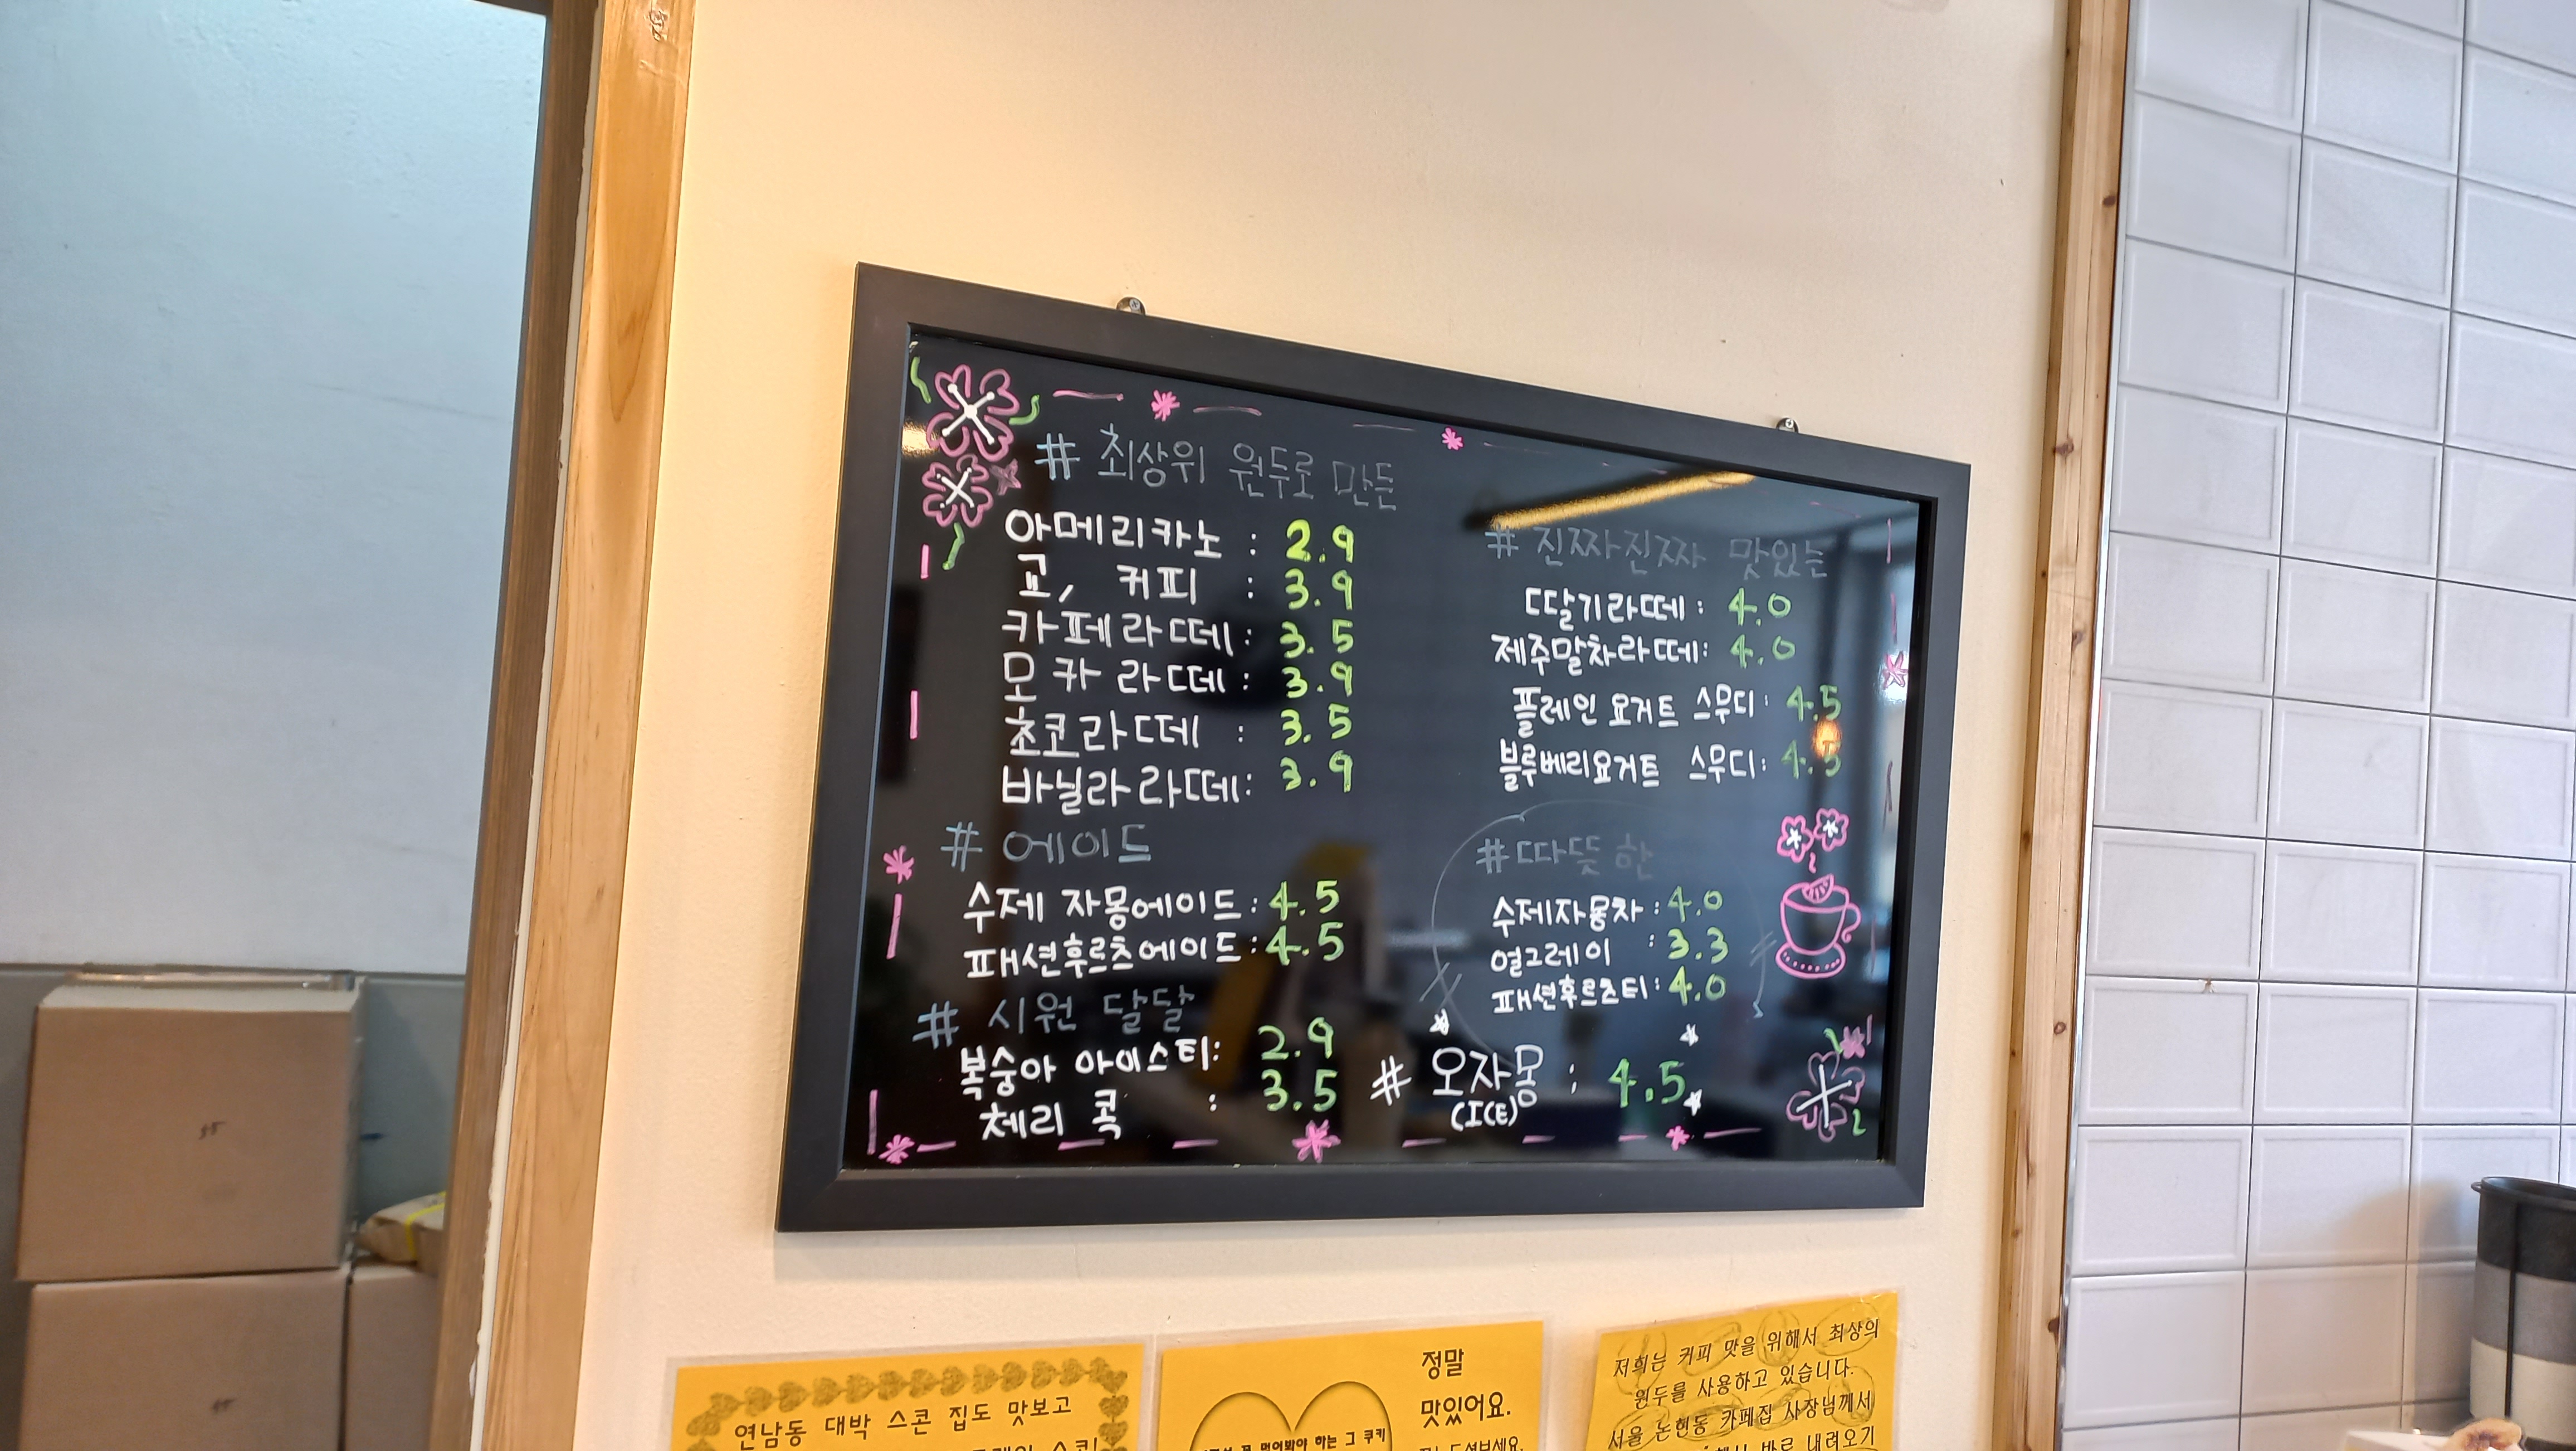 # 최상위 원두로 만든
아메리카노 : 2.9
고, 커피 : 3.9
카페라떼 : 3.5
모카라떼 : 3.9
초코라떼 : 3.5
바닐라라떼: 3.9
# 에이드
수제 자몽에이드 : 4.5
패션후르츠에이드 : 4.5
# 시원 달달
복숭아 아이스티: 2.9
체리 콕 : 3.5
# 진짜진짜 맛있는
딸기라떼 : 4.0
제주말차라떼: 4.0
플레인 요거트 스무디 : 4.5
블루베리요거트 스무디: 4.5
# 따뜻한
수제자몽차 : 4.0
얼그레이 : 3.3
패션후르츠티 : 4.0
# 오자몽 : 4.5
(ICE)
연남동 대박 스콘 집도 맛보고
정말
맛있어요.
먹어봐야 하는 그 쿠키
저희는 커피 맛을 위해서 최상의
원두를 사용하고 있습니다.
서울 논현동 카페집 사장님께서
바로 내려오기